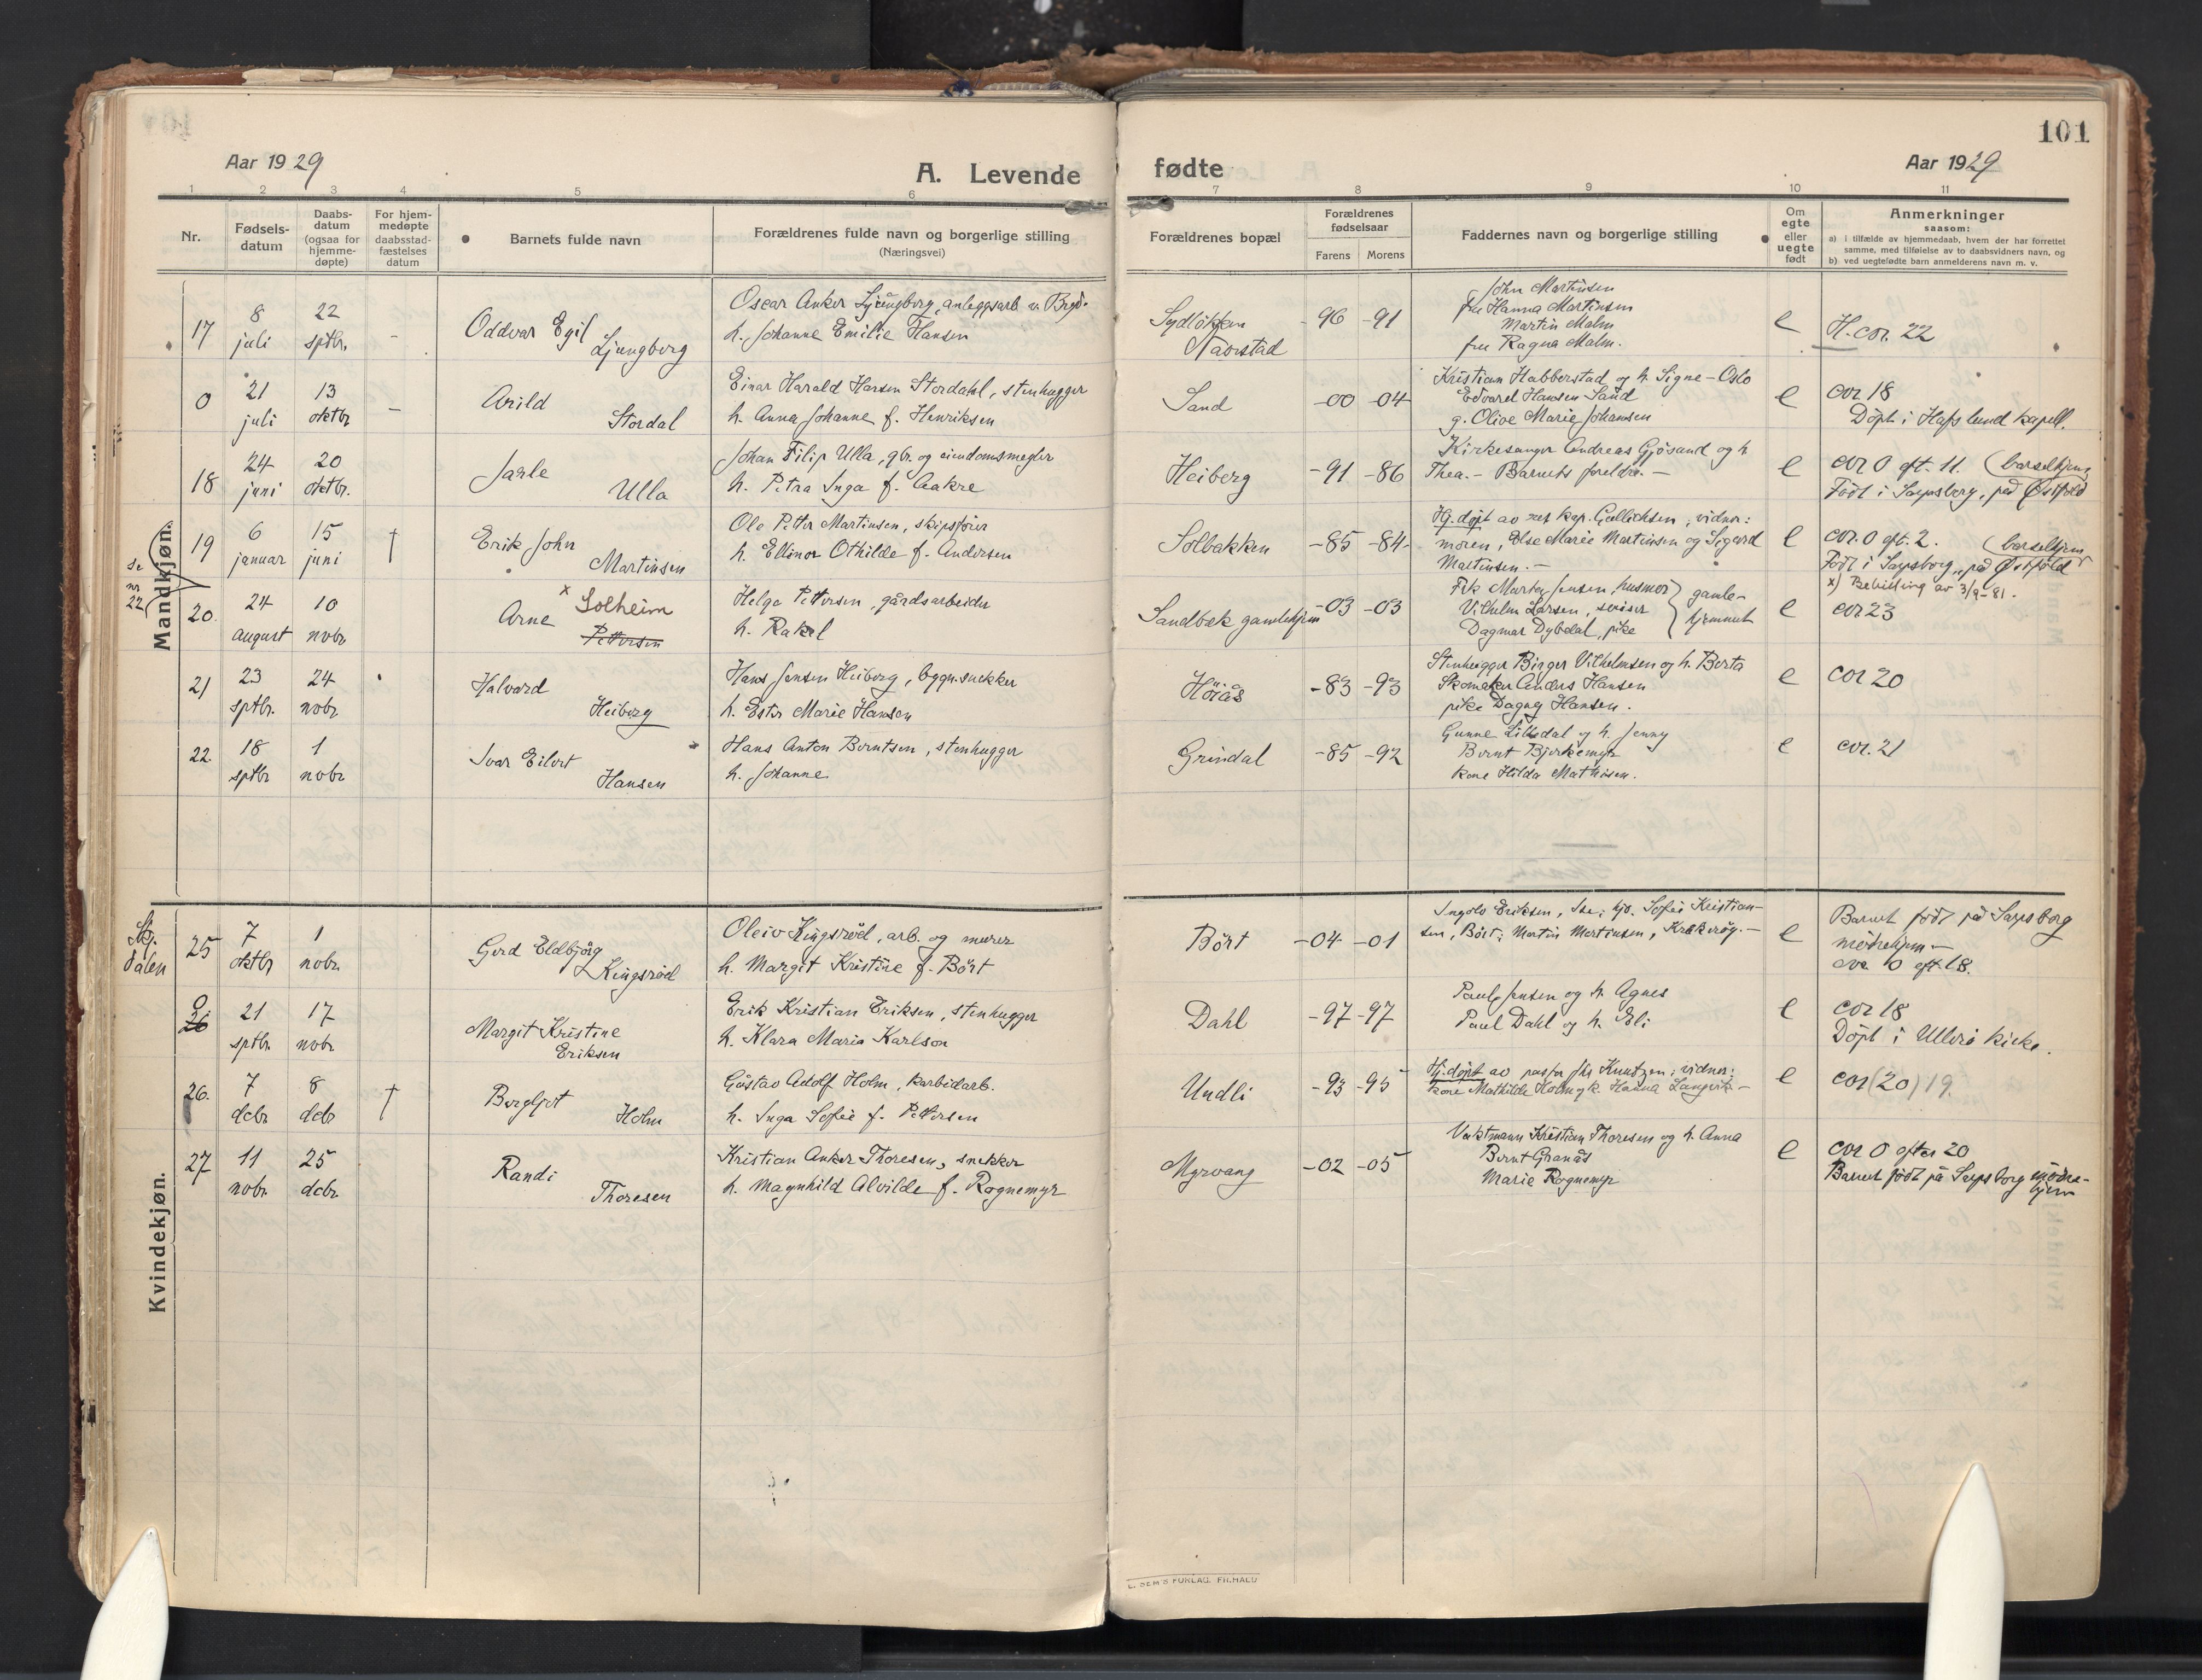 101
Aar 1929
A. Levende
fødte
Aar 1929
1 2 3 4 5 6 7 8 9 10 11
Nr.
Fødsels-
datum
Daabs-
datum
(ogsaa for
hjemme-
døpte)
For hjem-
medøpte
daabsstad-
fæstelses
datum
Barnets fulde navn
Forældrenes fulde navn og borgerlige stilling
(Næringsvei)
Forældrenes bopæl
Forældrenes
fødselsaar
Farens Morens
Faddernes navn og borgerlige stilling
Om
egte
eller
uegte
født
Anmerkninger
saasom:
a) i tilfælde av hjemmedaab, hvem der har forrettet
samme, med tilføielse av to daabsvidners navn, og
b) ved uegtefødte barn anmelderens navn m. v.
Mandkjøn.
17
8
juli
22
sptbr.
-
Oddvar Egil
Ljungborg
Oscar Anker Ljungborg, anleggsarb v. Bryd.
h. Johanne Emilie Hansen
Sydløkken
Navestad
-96 -91
John Martinsen
fru Hanna Martinsen
Martin Malm
fru Ragna Malm.
e
H. cor. 22
0
21
juli
13
oktbr
-
Arild
Stordal
Einar Harald Hansen Stordahl, stenhugger
h. Anna Johanne f. Henriksen
Sand
-00 -04
Kristian Habberstad og h. Signe - Oslo
Edvard Hansen Sand
g. Olive Marie Johansen
e
cor 18
Döpt i Hafslund kapell.
18
24
juni
20
oktbr.
Jarle
Ulla
Johan Filip Ulla, gbr. og eiendomsmegler
h. Petra Inga f. Aakre
Heiberg
-91 -86
Kirkesanger Andreas Gjösand og h
Thea. - Barnets foreldre. -
e
cor 0 eft. 11. (barselhjem
Född i Sarpsborg, på Østfold
19
6
januar
15
juni
†
Erik John
Martinsen
Ole Petter Martinsen, skipsfører
h. Ellinor Othilde f. Andersen
Solbakken
-85 -84
Hj. døpt av res kap. Gullichsen, vidner:
moren, Else Marie Martinsen og Sigurd
Martinsen. -
e
cor. 0 eft. 2. (barselhjem
Född i Sarpsborg, på Østfold
se
nr
22
20.
24
august
10
nobr
Arne x Solheim
Pettersen
Helge Pettersen, gårdsarbeider
h. Rakel
Sandbæk gamlehjem
-03 -03
Frk Marta Jensen, husmor
Vilhelm Larsen, sveiser
Dagmar Dybdal, pike
gamle-
hjemmet
e
x) Bevilling av 3/9-81.
cor 23
21
23
sptbr.
24
nobr
Halvard
Heiberg
Hans Jensen Heiberg, byggn.snekker
h. Ester Marie Hansen
Höiås
-83 -93
Stenhugger Birger Vilhelmsen og h. Berta
Skomaker Anders Hansen
pike Dagny Hansen.
e
cor 20
22.
18
sptbr
1
nobr
Ivar Eilert
Hansen
Hans Anton Berntsen, stenhugger
h. Johanne
Grindal
-85 -92
Gunne Lillesdal og h. Jenny
Bernt Bjerkemyr
kone Hilda Mathisen.
e
cor. 21
Kvindekjøn.
Skj.
dalen
25
7
oktbr
1
nobr.
Gerd Eldbjörg
Kingsröd
Oleiv Kingsröd, arb. og murer
h. Margit Kristine f. Bört
Bört
-04 -01
Ingolv Eriksen, Ise; hfr. Sofie Kristian-
sen, Bört; Martin Martinsen, Kråkeröy. -
e
Barnet född på Sarpsborg
mödrehjem -
cor. 0 eft. 18.
0
26
21
sptbr.
17
nobr
Margit Kristine
Eriksen
Erik Kristian Eriksen, stenhugger
h. Klara Maria Karlson
Dahl
-97 -97
Paul Jensen og h. Agnes
Paul Dahl og h. Eli
e
cor 18
Döpt i Ullerö kirke.
26.
7
dcbr
8
dcbr
†
Bergljot
Holm
Gustav Adolf Holm, karbidarb.
h. Inga Sofie f. Pettersen
Undli
-93 -95
Hj. døpt av pastor Chr Knudzen; vidner:
kone Mathilde Holm og k. Hanna Langvik -
e
cor (20) 19.
27
11
nobr.
25
dcbr.
Randi
Thoresen
Kristian Anker Thoresen, snekker
h. Magnhild Alvilde f. Rognemyr
Myrvang
-02 -05
Vaktmann Kristian Thoresen og h. Anna
Bernt Granås
Marie Rognemyr
e
cor 0 efter 20
Barnet född på Sarpsborg mödre-
hjem